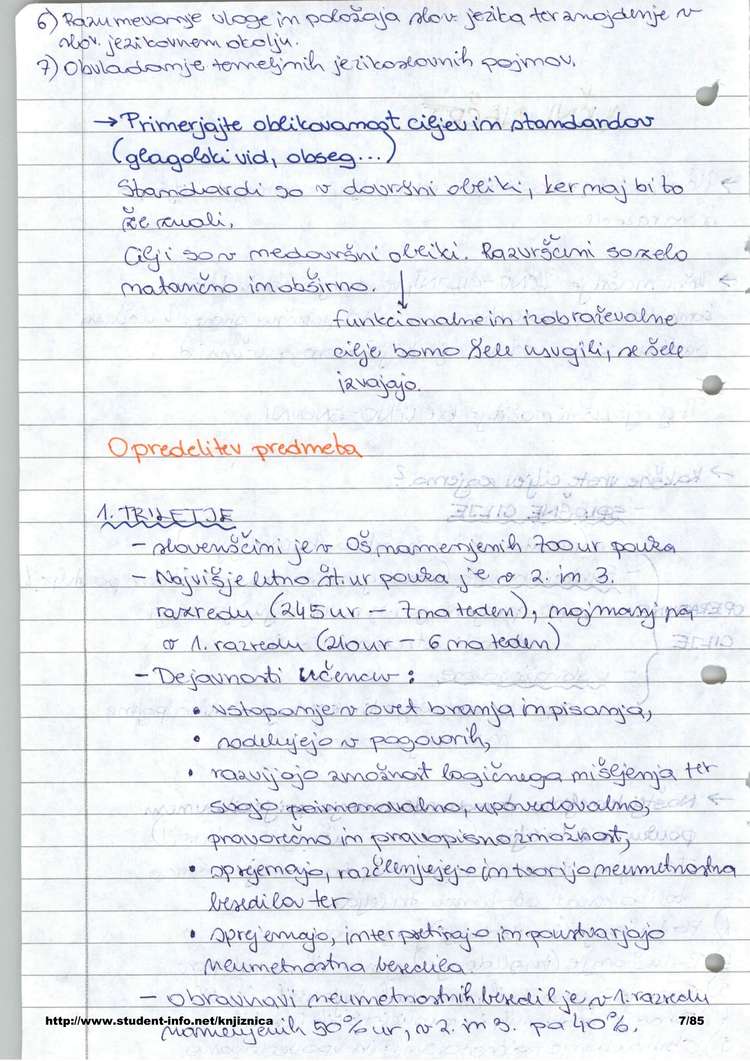 6) Razumevanje vloge in položaja slov. jezika ter znajdenje v
slov. jezikovnem okolju.
7) Obvladanje temeljnih jezikoslovnih pojmov.
→ Primerjajte oblikovanost ciljev in standardov
(glagolski vid, obseg...)
Standardi so v dovršni obliki, ker naj bi to
že znali.
Cilji so v nedovršni obliki. Razvrščeni so zelo
natančno in obširno. ↓
funkcionalne in izobraževalne
cilje bomo šele usvojili, se šele
izvajajo.
Opredelitev predmeta
1. TRILETJE
- slovenščini je v OŠ namenjenih 700 ur pouka
- Najvišje letno št. ur pouka je v 2. in 3.
razredu (245 ur - 7 na teden), najmanj pa
v 1. razredu (210 ur - 6 na teden)
- Dejavnosti učencev:
• vstopanje v svet branja in pisanja,
• sodelujejo v pogovorih,
• razvijajo zmožnost logičnega mišljenja ter
svojo poimenovalno, upovedovalno,
pravorečno in pravopisno zmožnost,
• sprejemajo, razčlenjujejo in tvorijo neumetnostna
besedila ter
• sprejemajo, interpretirajo in poustvarjajo
neumetnostna besedila
- Obravnavi neumetnostnih besedil je v 1. razredu
namenjenih 50% ur, v 2. in 3. pa 40%.
http://www.student-info.net/knjiznica 7/85